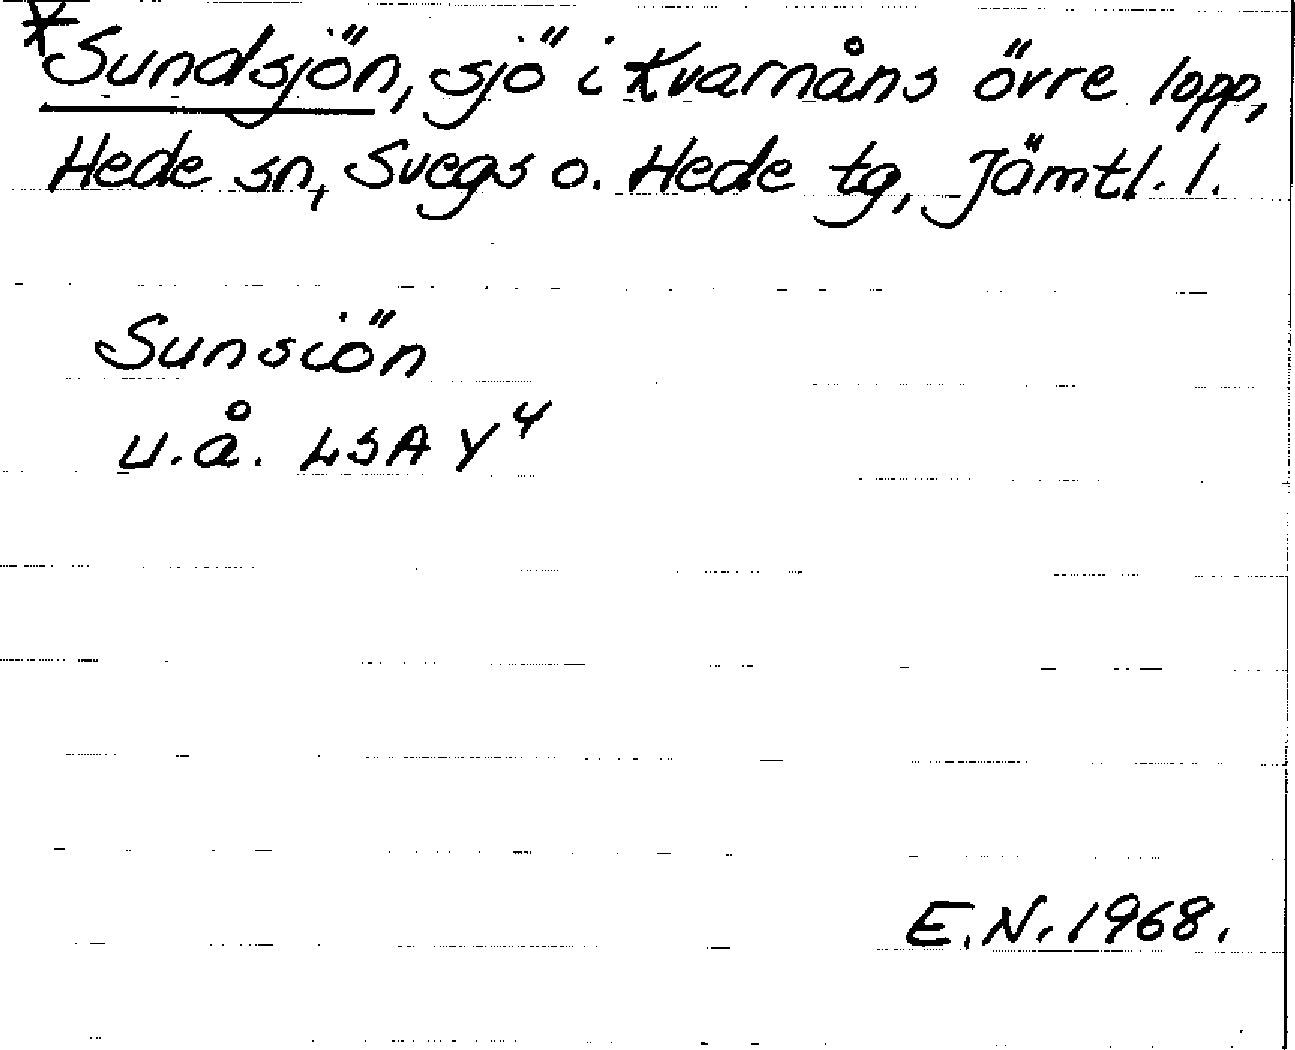 *Sundsjön, sjö i Kvarnåns övre lopp,
Hede sn, Svegs o. Hede tg, Jämtl. l.
Sunsiön
u.å. LSA Y4
E.N. 1968.